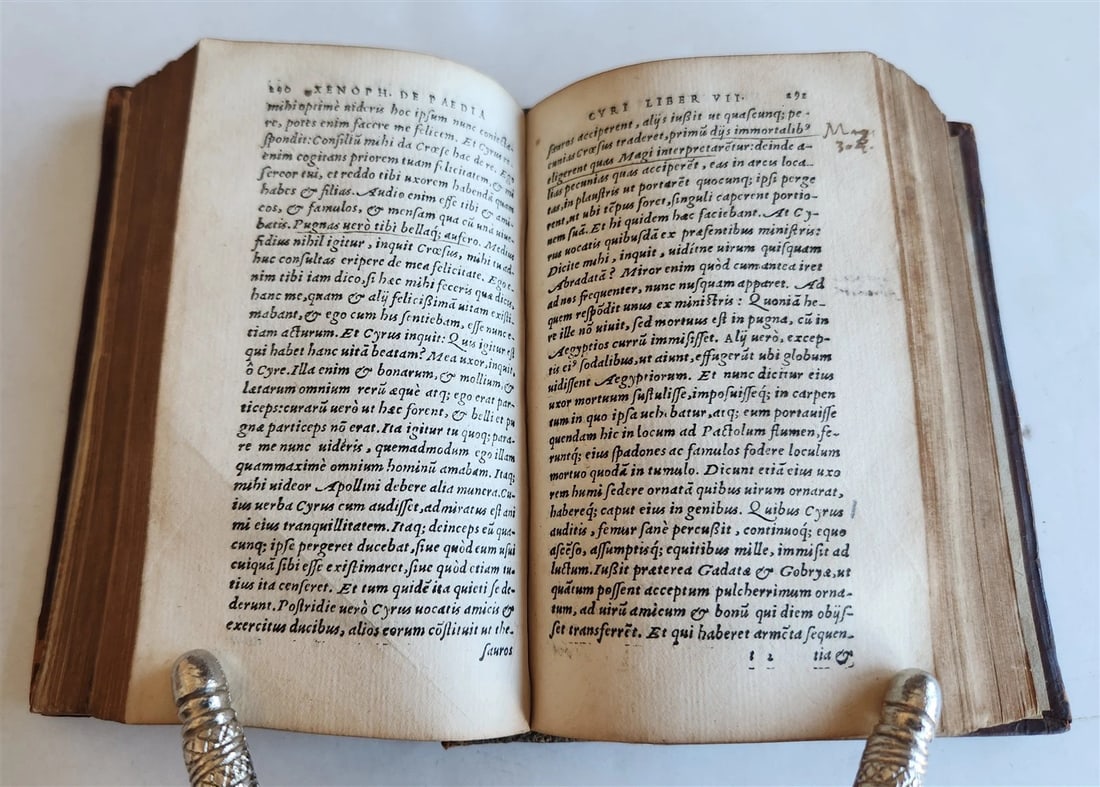 290 XENOPH. DE PAEDIA
mihi optimè uideris hoc ipsum nunc coniecta-
re, potes enim facere me felicem. Et Cyrus re-
spondit: Consiliũ mihi da Crœse hac de re. Ego
enim cogitans priorem tuam felicitatem, & mi
sereor tui, et reddo tibi uxorem habendã quam
habes & filias. Audio enim esse tibi & ami-
cos, & famulos, & mensam qua cũ una uiue-
batis. Pugnas uerò tibi bellaq́; aufero. Medius
fidius nihil igitur, inquit Crœsus, mihi tu ad-
huc consultas eripere de mea felicitate. Ego e-
nim tibi iam dico, si hæc mihi feceris quæ dicis,
hanc me, quam & alij felicißimã uitam existi-
mabant, & ego cum his sentiebam, esse nunc e-
tiam acturum. Et Cyrus inquit: Quis igitur est
qui habet hanc uitã beatam? Mea uxor, inquit,
ô Cyre. Illa enim & bonarum, & mollium, &
lætarum omnium rerũ æquè atq; ego erat par-
ticeps: curarũ uerò ut hæc forent, & belli et pu
gnæ particeps nõ erat. Ita igitur tu quoq; para-
re me nunc uidéris, quemadmodum ego illam
quammaximè omnium hominũ amabam. Itaq;
mihi uideor Apollini debere alia munera. Cu-
ius uerba Cyrus cum audisset, admiratus est ani
mi eius tranquillitatem. Itaq; deinceps eũ qua-
cunq; ipse pergeret ducebat, siue quòd eum usui
cuiquã sibi esse existimaret, siue quòd etiam tu-
tius ita censeret. Et tum quidẽ ita quieti se de-
derunt. Postridie uerò Cyrus uocatis amicis &
exercitus ducibus, alios eorum cõstituit ut the-
sauros
CYRI LIBER VII. 291
sauros acciperent, alijs iußit ut quascunq; pe-
cunias Crœsus traderet, primũ dijs immortalibꝰ
eligerent quas Magi interpretarẽtur: deinde a-
lias pecunias quas acciperẽt, eas in arcu loca-
tas, in plaustris ut portarẽt quocunq; ipsi perge
rent, ut ubi tẽpus foret, singuli caperent portio-
nem suã. Et hi quidem hæc faciebant. At Cy-
rus uocatis quibusdã ex præsentibus ministris:
Dicite mihi, inquit, uiditne uirum quisquam
Abradatã? Miror enim quòd cum antea iret
ad nos frequenter, nunc nusquam apparet. Ad
quem respõdit unus ex ministris: Quoniã he-
re ille nõ uiuit, sed mortuus est in pugna, cũ in
Aegyptios currũ immisisset. Alij uerò, excep-
tis eiꝰ sodalibus, ut aiunt, effugerũt ubi globum
uidissent Aegyptiorum. Et nunc dicitur eius
uxor mortuum sustulisse, imposuisseq́; in carpen
tum in quo ipsa ueh batur, atq; eum portauisse
quendam hic in locum ad Pactolum flumen, fe-
runtq́; eius spadones ac famulos fodere loculum
mortuo quodã in tumulo. Dicunt etiã eius uxo
rem humi sedere ornatã quibus uirum ornarat,
habereq́; caput eius in genibus. Quibus Cyrus
auditis, femur sanè percußit, continuoq́; equo
ascẽso, assumptisq́; equitibus mille, immisit ad
luctum. Iußit præterea Gadatæ & Gobryæ, ut
quãtum possent acceptum pulcherrimum orna-
tum, ad uirũ amicum & bonũ qui diem obijs-
set transferrẽt. Et qui haberet armẽta sequen-
t 2 tia &
Mag.